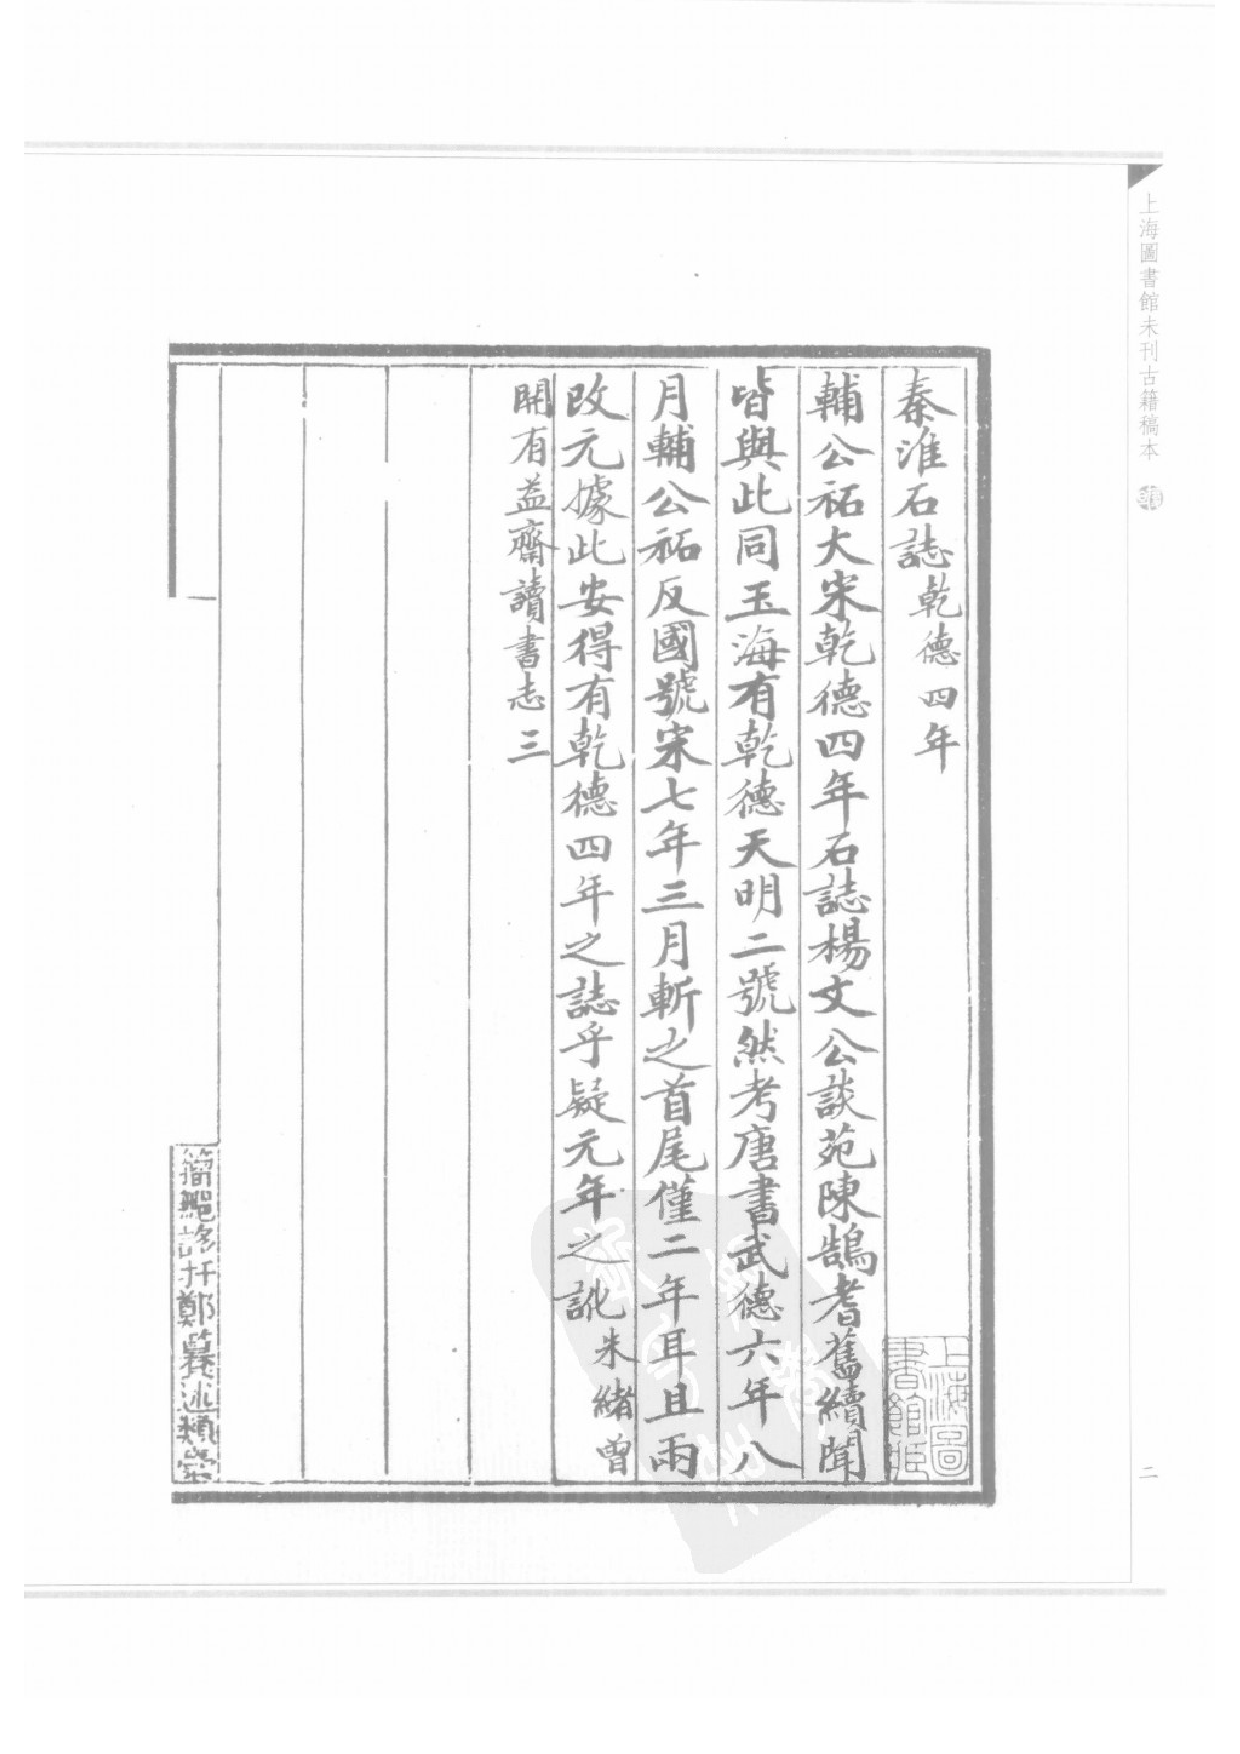 上海圖書館未刊古籍稿本
二
秦淮石誌乾德四年
輔公祏大宋乾德四年石誌楊文公談苑陳鵠耆舊續聞
皆與此同玉海有乾德天明二號然考唐書武德六年八
月輔公祏反國號宋七年三月斬之首尾僅二年耳且兩
改元據此安得有乾德四年之誌乎疑元年之訛朱緒曾
開有益齋讀書志三
上海圖書館藏